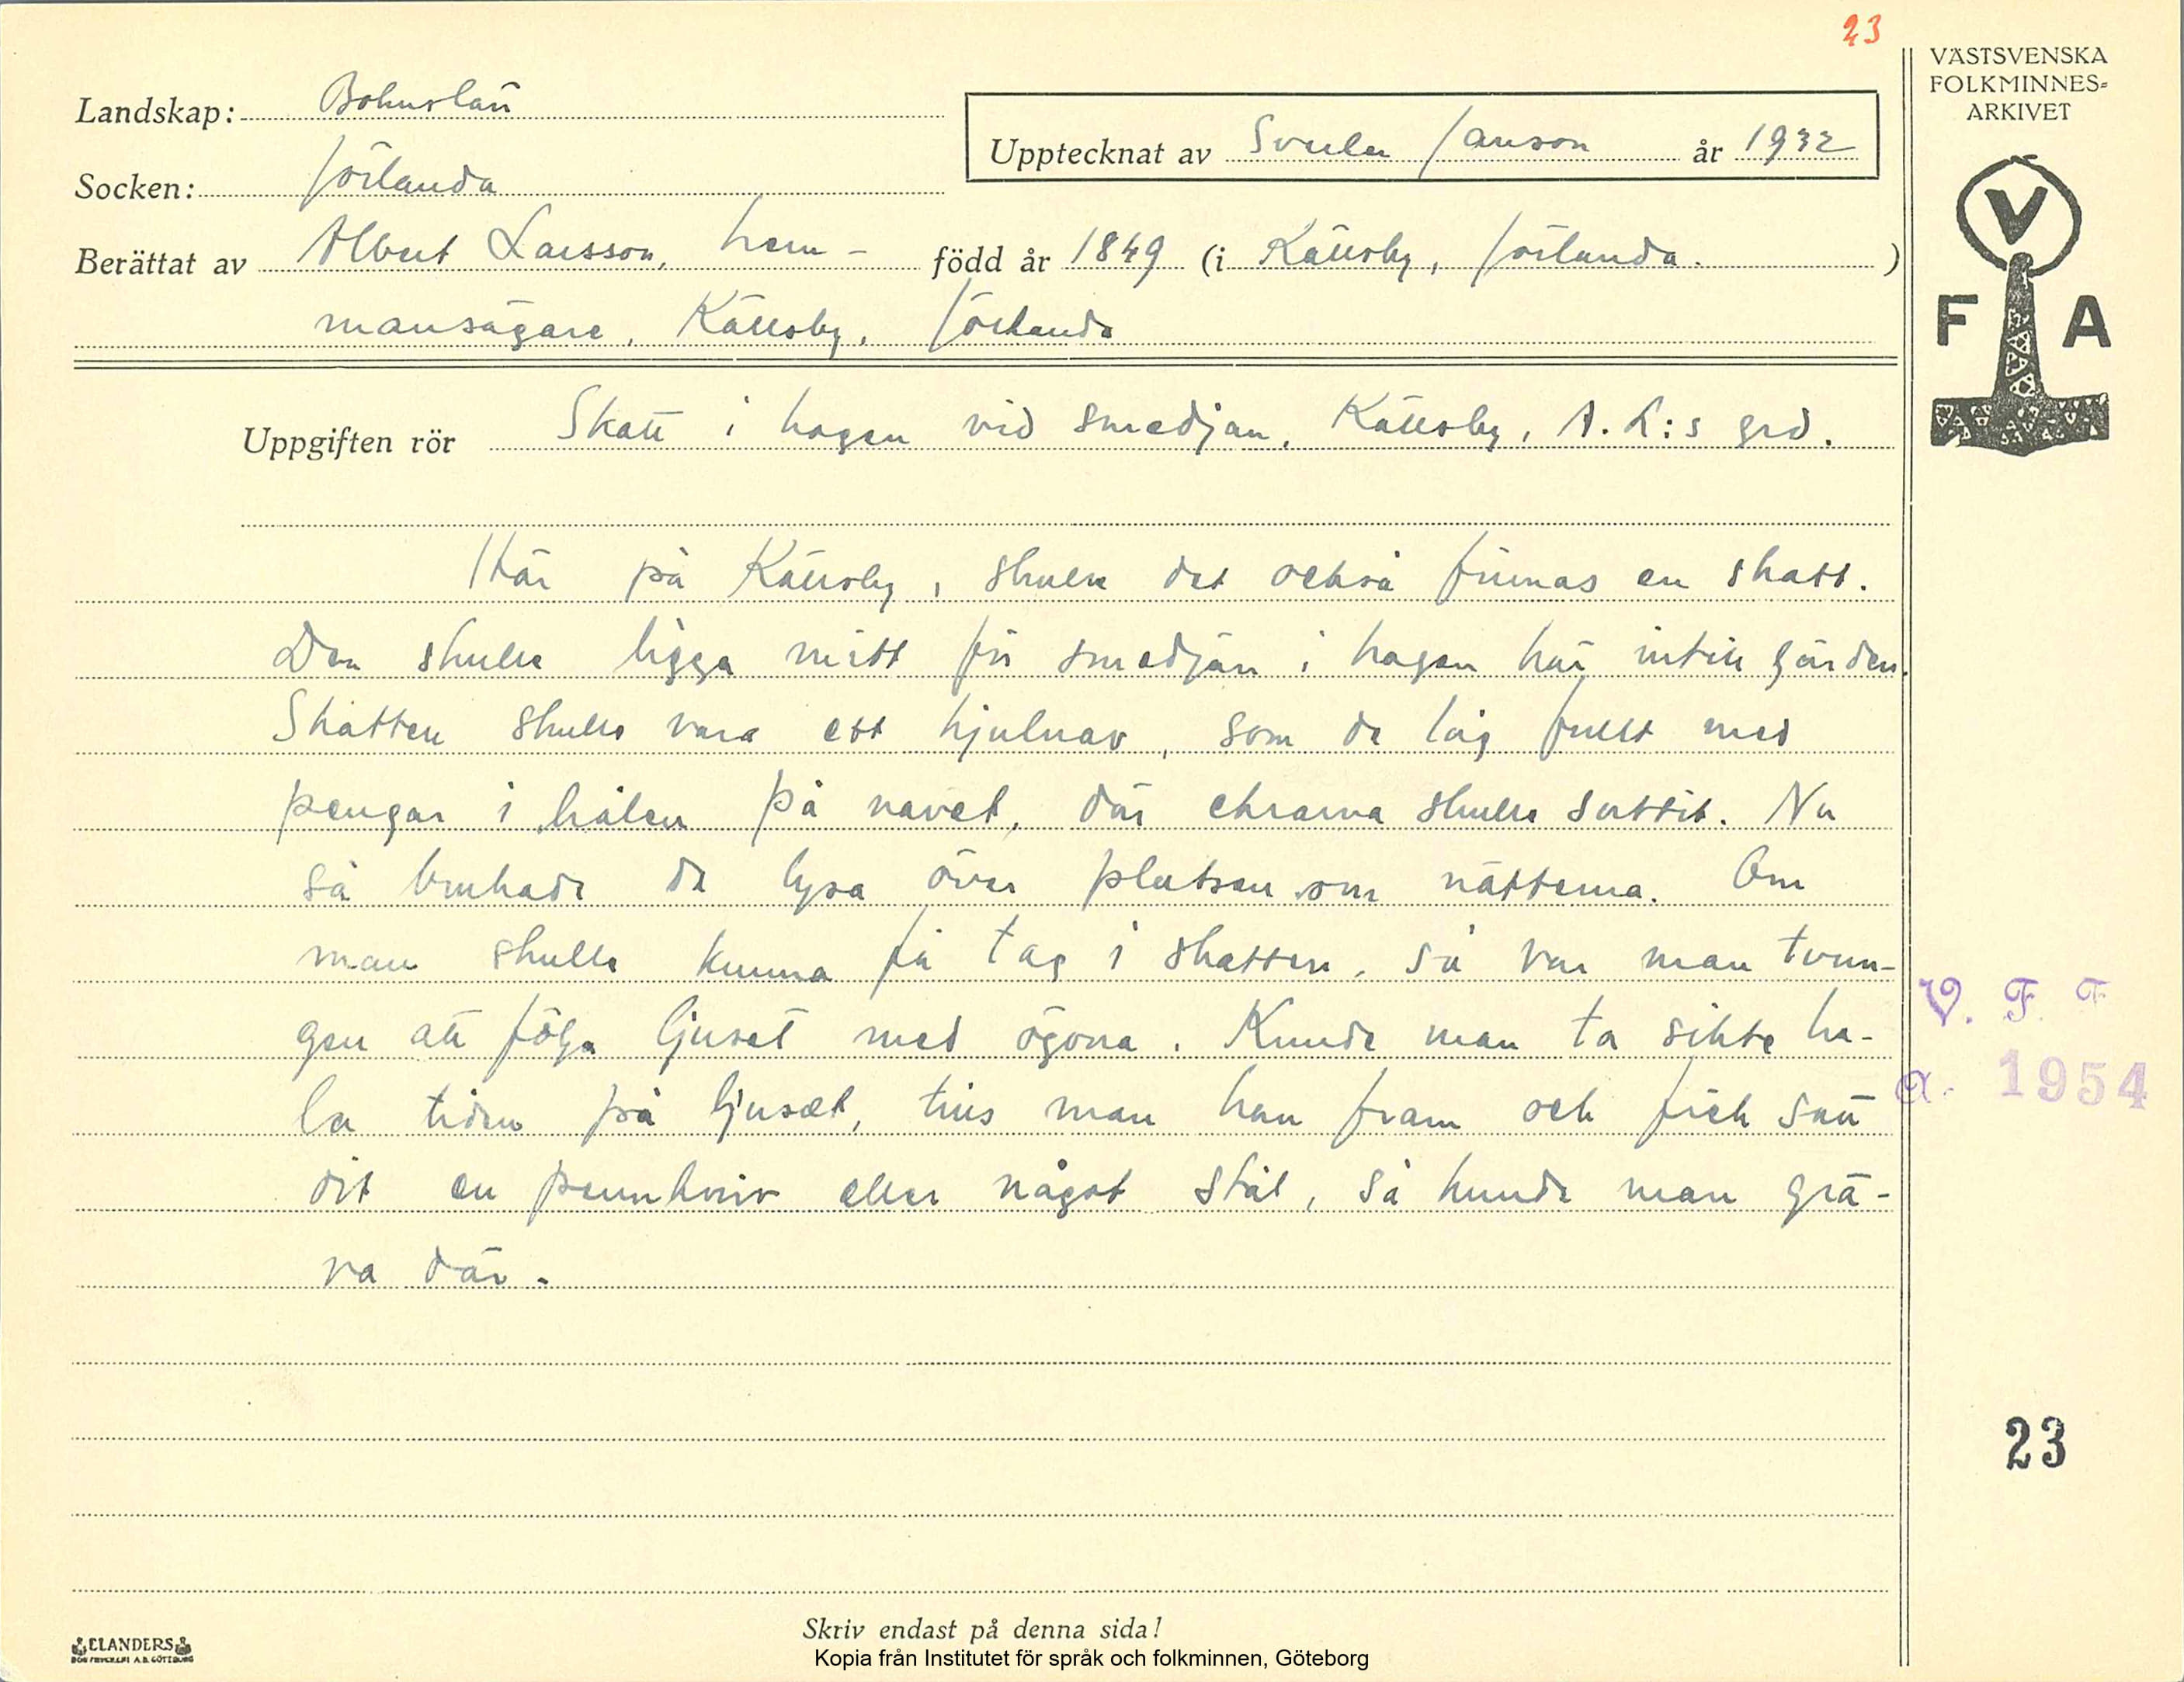 23
VÄSTSVENSKA
FOLKMINNES-
ARKIVET
Landskap: Bohuslän
Upptecknat av Sverker Janson år 1932
Socken: Jörlanda
Berättat av Albert Larsson, hem- född år 1849 (i Källsby, Jörlanda.)
mansägare, Källsby, Jörlanda
V
F A
Uppgiften rör Skatt i hagen vid smedjan, Källsby, A. L:s grd.
Här på Källsby, skulle det också finnas en skatt.
Den skulle ligga mitt för smedjan i hagen här intill gården.
Skatten skulle vara ett hjulnav, som de låg fullt med
pengar i hålen på navet, där ekrarna skulle suttit. Nu
så brukade de lysa över platsen om nätterna. Om
man skulle kunna få tag i skatten, så var man tvun-
gen att följa ljuset med ögona. Kunde man ta sikte he-
la tiden på ljuset, tills man han fram och fick satt
dit en pennkniv eller något stål, så kunde man grä-
va där.
V. F. F
a. 1954
23
Skriv endast på denna sida!
ELANDERS
BOKTRYCKERI A.B. GÖTEBORG
Kopia från Institutet för språk och folkminnen, Göteborg